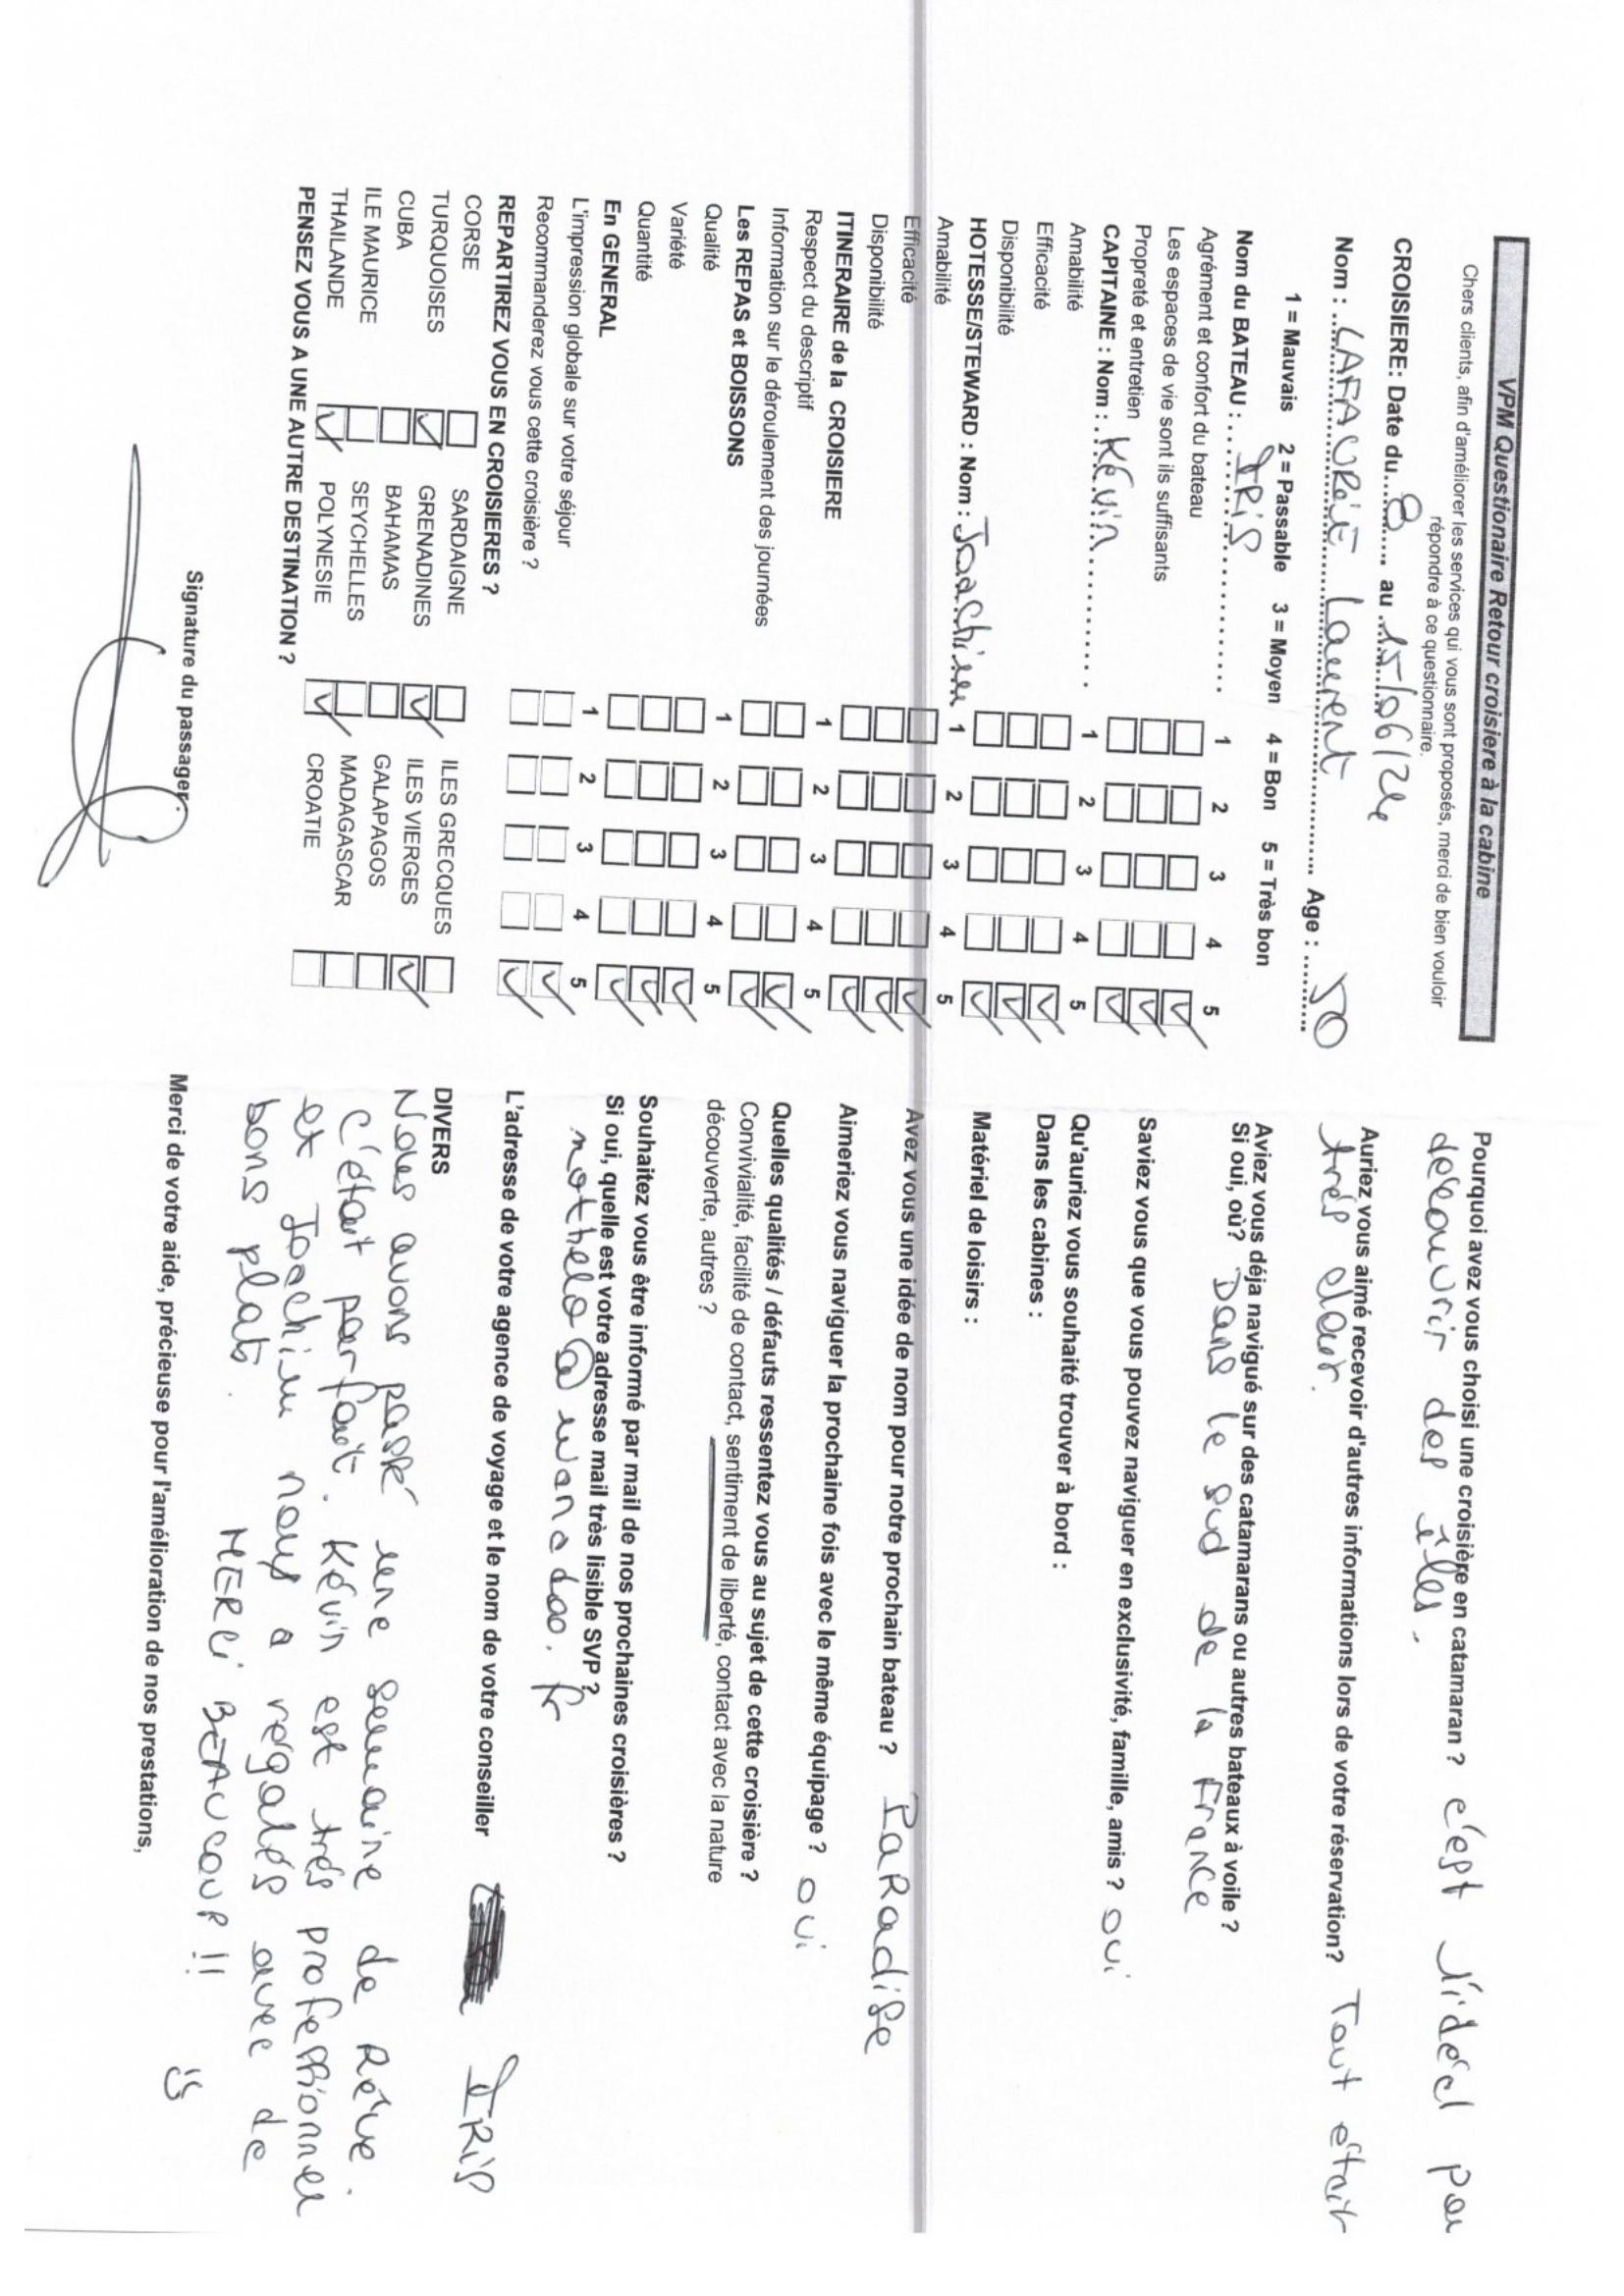 VPM Questionaire Retour croisiere à la cabine
Chers clients, afin d'améliorer les services qui vous sont proposés, merci de bien vouloir
répondre à ce questionnaire.
CROISIERE: Date du..8..... au ..15/06/24
Nom : ..LAFAURIE Laurent.......... Age : .......50
1 = Mauvais 2 = Passable 3 = Moyen 4 = Bon 5 = Très bon
Nom du BATEAU : ....IRIS............ 1 2 3 4 5
Agrément et confort du bateau
Les espaces de vie sont ils suffisants
Propreté et entretien
CAPITAINE : Nom : ..Kévin........... 1 2 3 4 5
Amabilité
Efficacité
Disponibilité
HOTESSE/STEWARD : Nom : Joachim 1 2 3 4 5
Amabilité
Efficacité
Disponibilité
ITINERAIRE de la CROISIERE 1 2 3 4 5
Respect du descriptif
Information sur le déroulement des journées
Les REPAS et BOISSONS 1 2 3 4 5
Qualité
Variété
Quantité
En GENERAL 1 2 3 4 5
L'impression globale sur votre séjour
Recommanderez vous cette croisière ?
REPARTIREZ VOUS EN CROISIERES ?
CORSE SARDAIGNE ILES GRECQUES
TURQUOISES GRENADINES ILES VIERGES
CUBA BAHAMAS GALAPAGOS
ILE MAURICE SEYCHELLES MADAGASCAR
THAILANDE POLYNESIE CROATIE
PENSEZ VOUS A UNE AUTRE DESTINATION ?
Signature du passager :
Pourquoi avez vous choisi une croisière en catamaran ? c'est l'idéal pou
découvrir des îles.
Auriez vous aimé recevoir d'autres informations lors de votre réservation? Tout était
très clair.
Aviez vous déja navigué sur des catamarans ou autres bateaux à voile ?
Si oui, où? Dans le sud de la France
Saviez vous que vous pouvez naviguer en exclusivité, famille, amis ? oui
Qu'auriez vous souhaité trouver à bord :
Dans les cabines :
Matériel de loisirs :
Avez vous une idée de nom pour notre prochain bateau ? PaRadise
Aimeriez vous naviguer la prochaine fois avec le même équipage ? oui
Quelles qualités / défauts ressentez vous au sujet de cette croisière ?
Convivialité, facilité de contact, sentiment de liberté, contact avec la nature
découverte, autres ?
Souhaitez vous être informé par mail de nos prochaines croisières ?
Si oui, quelle est votre adresse mail très lisible SVP ?
nathelo@wanadoo.fr
L'adresse de votre agence de voyage et le nom de votre conseiller IRIS
DIVERS
Nous avons passé une semaine de Rêve.
C'était parfait. Kévin est très professionnel
et Joachim nous a régalés avec de
bons plats. MERCi BEAUCOUP !!
Merci de votre aide, précieuse pour l'amélioration de nos prestations,